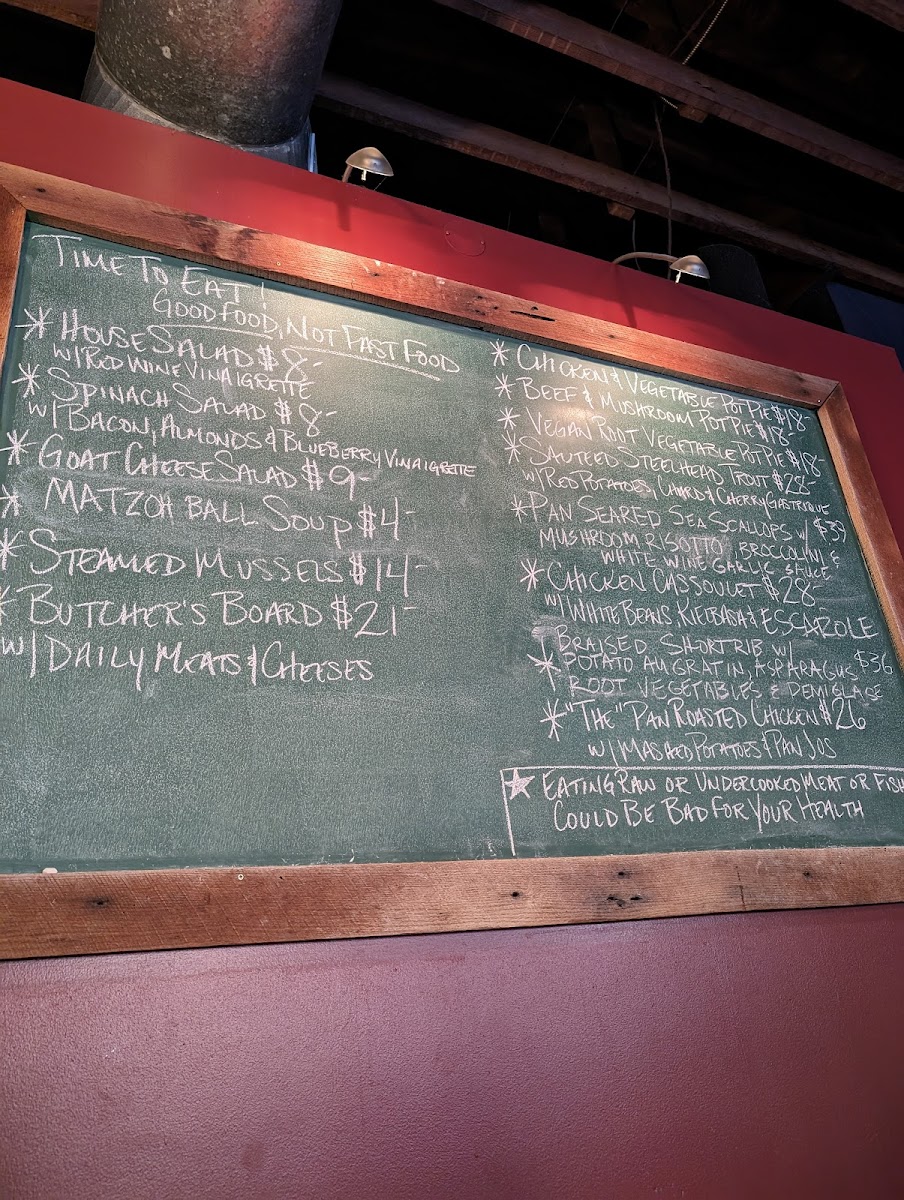 TIME TO EAT!
GOOD FOOD, NOT FAST FOOD
* HOUSE SALAD $8-
W/ RED WINE VINAIGRETTE
* SPINACH SALAD $8-
W/ BACON, ALMONDS & BLUEBERRY VINAIGRETTE
* GOAT CHEESE SALAD $9-
* MATZOH BALL SOUP $4-
* STEAMED MUSSELS $14-
* BUTCHER'S BOARD $21-
W/ DAILY MEATS & CHEESES
* CHICKEN & VEGETABLE POT PIE $18-
* BEEF & MUSHROOM POT PIE $18-
* VEGAN ROOT VEGETABLE POT PIE $18-
* SAUTEED STEELHEAD TROUT $28-
W/ RED POTATOES, CHARD & CHERRY GASTRIQUE
* PAN SEARED SEA SCALLOPS W/ $39
MUSHROOM RISOTTO, BROCCOLINI &
WHITE WINE GARLIC SAUCE
* CHICKEN CASSOULET $28-
W/ WHITE BEANS, KIELBASA & ESCAROLE
BRAISED SHORTRIB W/
* POTATO AU GRATIN, ASPARAGUS $36
ROOT VEGETABLES & DEMIGLACE
* "THE" PAN ROASTED CHICKEN $26
W/ MASHED POTATOES & PAN JUS
★ EATING RAW OR UNDERCOOKED MEAT OR FISH
COULD BE BAD FOR YOUR HEALTH